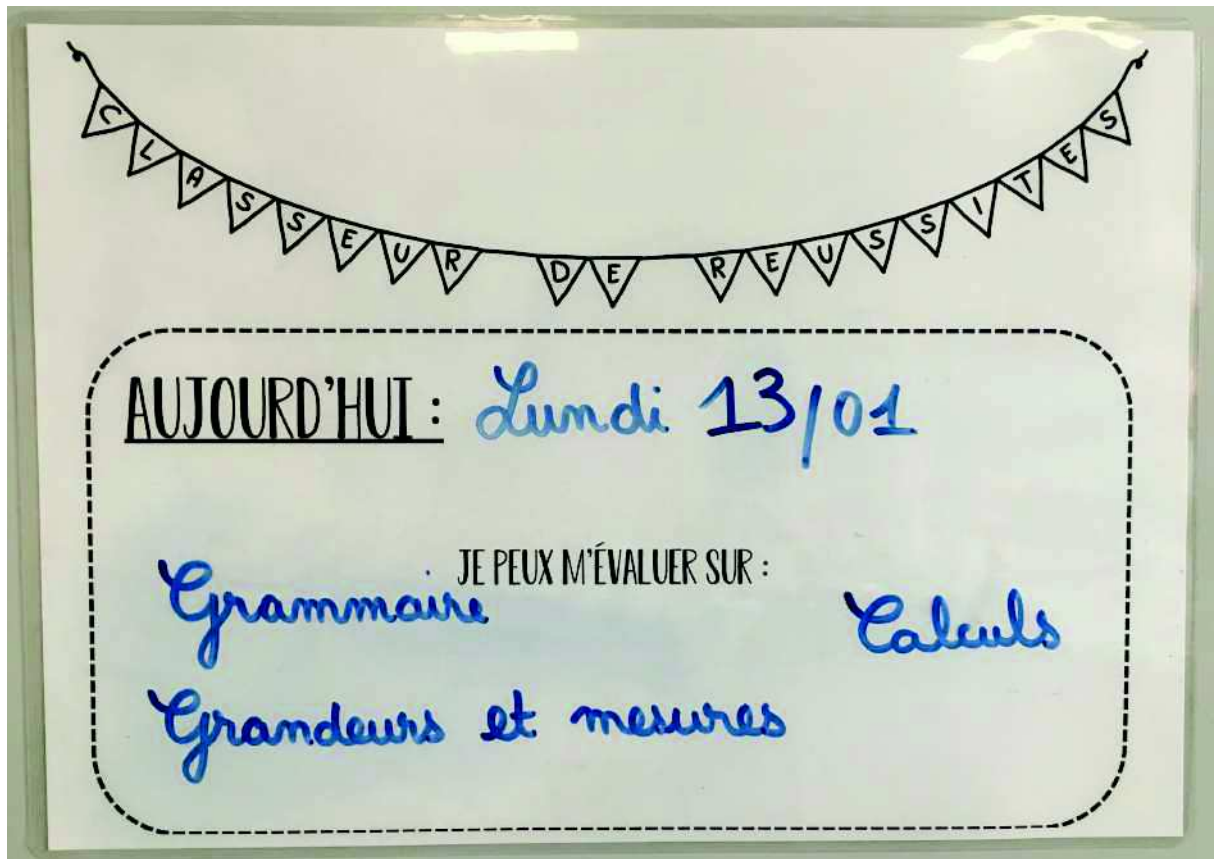 CLASSEUR DE REUSSITES
AUJOURD'HUI : Lundi 13/01
JE PEUX M'ÉVALUER SUR :
Grammaire
Calculs
Grandeurs et mesures